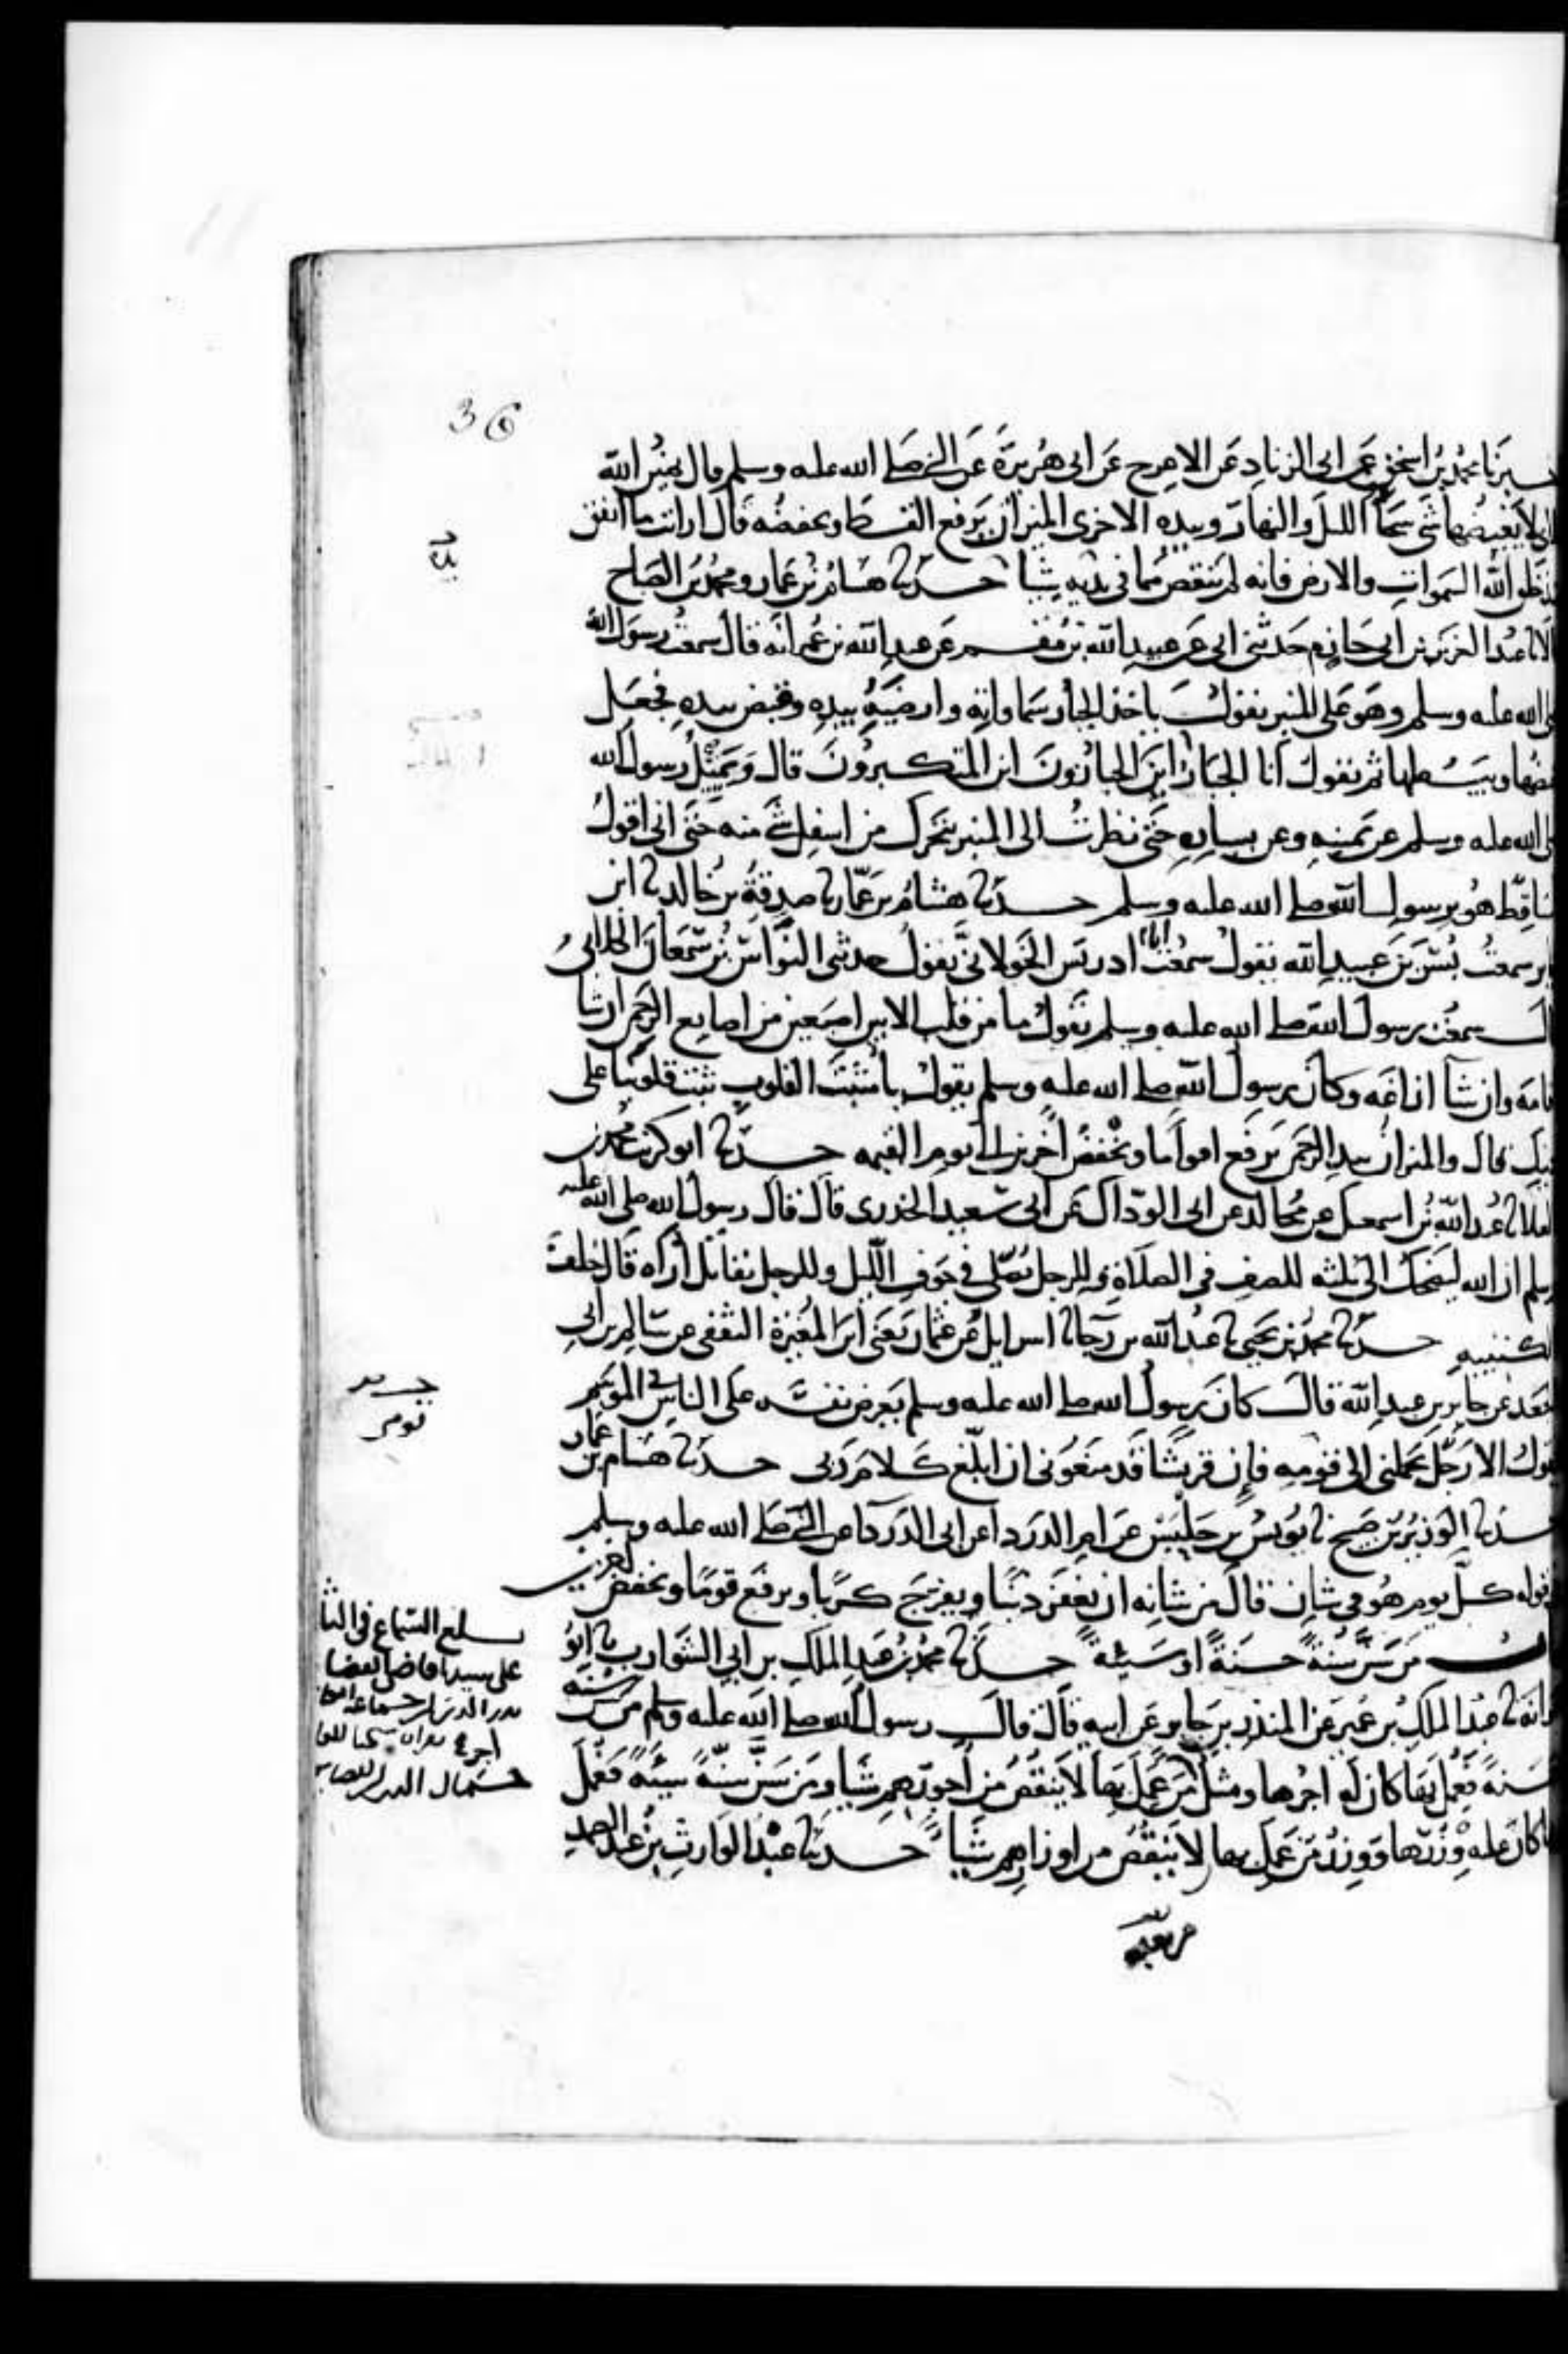 36
محمد بن اسحق عن ابى الزناد عن الاعرج عن ابى هريرة عن النبى صلى الله عليه وسلم قال يمين الله
لا يغيضها شى سحا الليل والنهار وبيده الاخرى الميزان يرفع القسط ويخفضه قال ارايت ما انفق
خلق الله السموات والارض فانه لم ينقص مما فى يديه شيا حدثنا هشام بن عمار ومحمد بن الصباح
عبد العزيز بن ابى حازم حدثنى ابى عن عبيد الله بن مقسم عن عبد الله بن عمر انه قال سمعت رسول الله
الله عليه وسلم وهو على المنبر يقول ياخذ الجبار سماواته وارضيه بيده وقبض بيده فجعل
ويبسطها ثم يقول انا الجبار اين الجبارون اين المتكبرون قال ويتميل رسول الله
الله عليه وسلم عن يمينه وعن يساره حتى نظرت الى المنبر يتحرك من اسفل شى منه حتى انى اقول
هو برسول الله صلى الله عليه وسلم حدثنا هشام بن عمار نا صدقة بن خالد نا ابن
سمعت بسر بن عبيد الله يقول سمعت ابا ادريس الخولانى يقول حدثنى النواس بن سمعان الكلابى
سمعت رسول الله صلى الله عليه وسلم يقول ما من قلب الا بين اصبعين من اصابع الرحمن ان شا
وان شا ازاغه وكان رسول الله صلى الله عليه وسلم يقول يا مثبت القلوب ثبت قلوبنا على
قال والميزان بيد الرحمن يرفع اقواما ويخفض اخرين الى يوم القيمه حدثنا ابو كريب محمد بن
عبد الله بن اسمعيل عن مجالد عن ابى الوداك عن ابى سعيد الخدرى قال قال رسول الله صلى الله عليه
ان الله ليضحك الى ثلثه للصف فى الصلاة وللرجل يصلى فى جوف الليل وللرجل يقاتل اراه قال خلف
حدثنا محمد بن يحيى نا عبد الله بن رجا نا اسرايل عن عثمان يعنى ابن المغيرة الثقفى عن سالم بن ابى
عن جابر بن عبد الله قال كان رسول الله صلى الله عليه وسلم يعرض نفسه على الناس فى الموسم
الا رجل يحملنى الى قومه فان قريشا قد منعونى ان ابلغ كلام ربى حدثنا هشام بن عمار
الوزير بن صبيح نا يونس بن حلبس عن ام الدردا عن ابى الدردا عن النبى صلى الله عليه وسلم
كل يوم هو فى شان قال من شانه ان يغفر ذنبا ويفرج كربا ويرفع قوما ويخفض اخرين
من سن سنة حسنة او سيئة حدثنا محمد بن عبد الملك بن ابى الشوارب نا ابو
عبد الملك بن عمير عن المنذر بن جرير عن ابيه قال قال رسول الله صلى الله عليه وسلم من سن سنه
فعمل بها كان له اجرها ومثل اجر من عمل بها لا ينقص من اجورهم شيا ومن سن سنة سيئه فعمل
كان عليه وزرها ووزر من عمل بها لا ينقص من اوزارهم شيا حدثنا عبد الوارث بن عبد الصمد
بلغ السماع فى
على سيدنا قاضى القضا